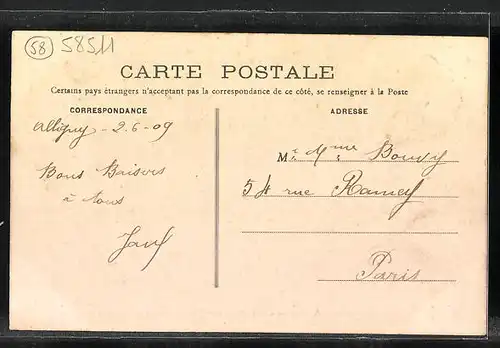 58 58511
CARTE POSTALE
Certains pays étrangers n'acceptant pas la correspondance de ce côté, se renseigner à la Poste
CORRESPONDANCE
ADRESSE
Alligny - 2-6-09
Bons Baisers
à tous
M. Mme Bouvy
54 rue Ramey
Paris